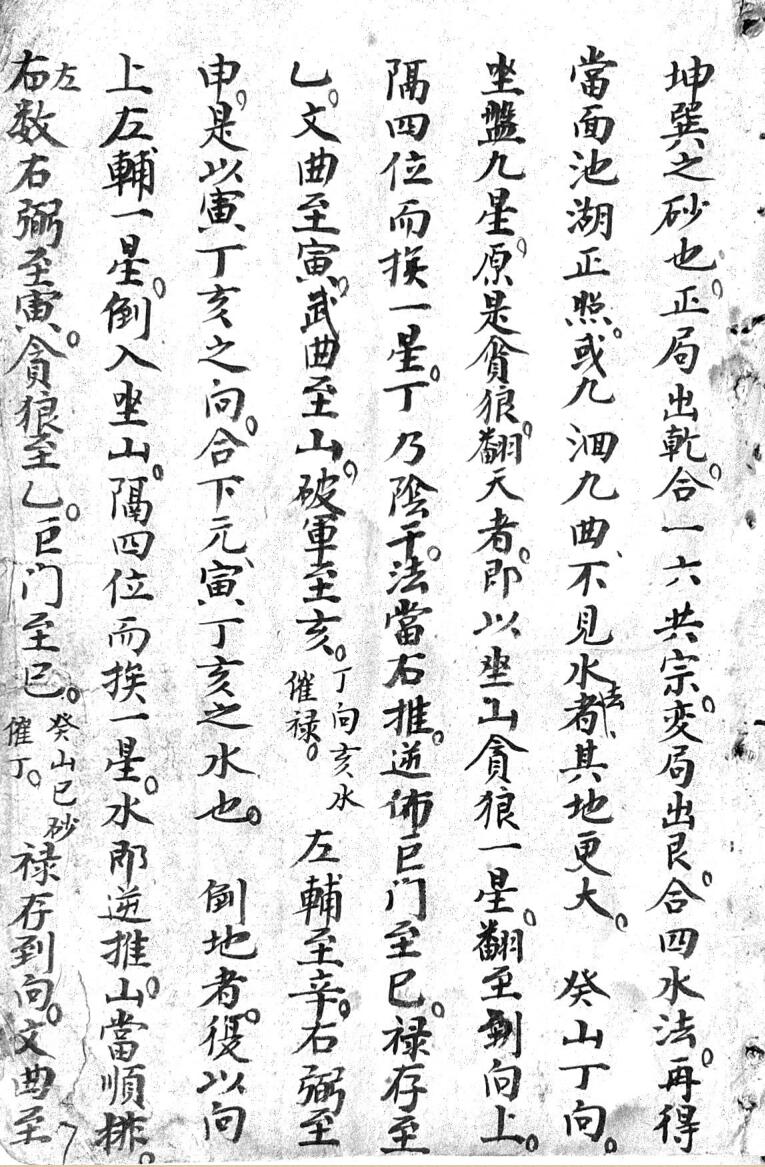 坤巽之砂也。正局出乹。合一六共宗。变局出艮。合四水法。再得
當面池湖正照。或九洄九曲、不見水者、其地更大。 癸山丁向。
坐盤九星。原是貪狼。翻天者。即以坐山貪狼一星。翻至到向上。
隔四位而挨一星。丁乃陰干。法當右推。逆佈巨门至巳。禄存至
乙。文曲至寅。武曲至山。破軍至亥。丁向亥水催禄。 左輔至辛。右弼至
申。是以寅丁亥之向。合下元、寅丁亥之水也。 倒地者。復以向
上左輔一星。倒入坐山。隔四位而挨一星。水即逆推。山當順排。
左右数右弼至寅。貪狼至乙。巨门至巳。癸山巳砂催丁。禄存到向。文曲至